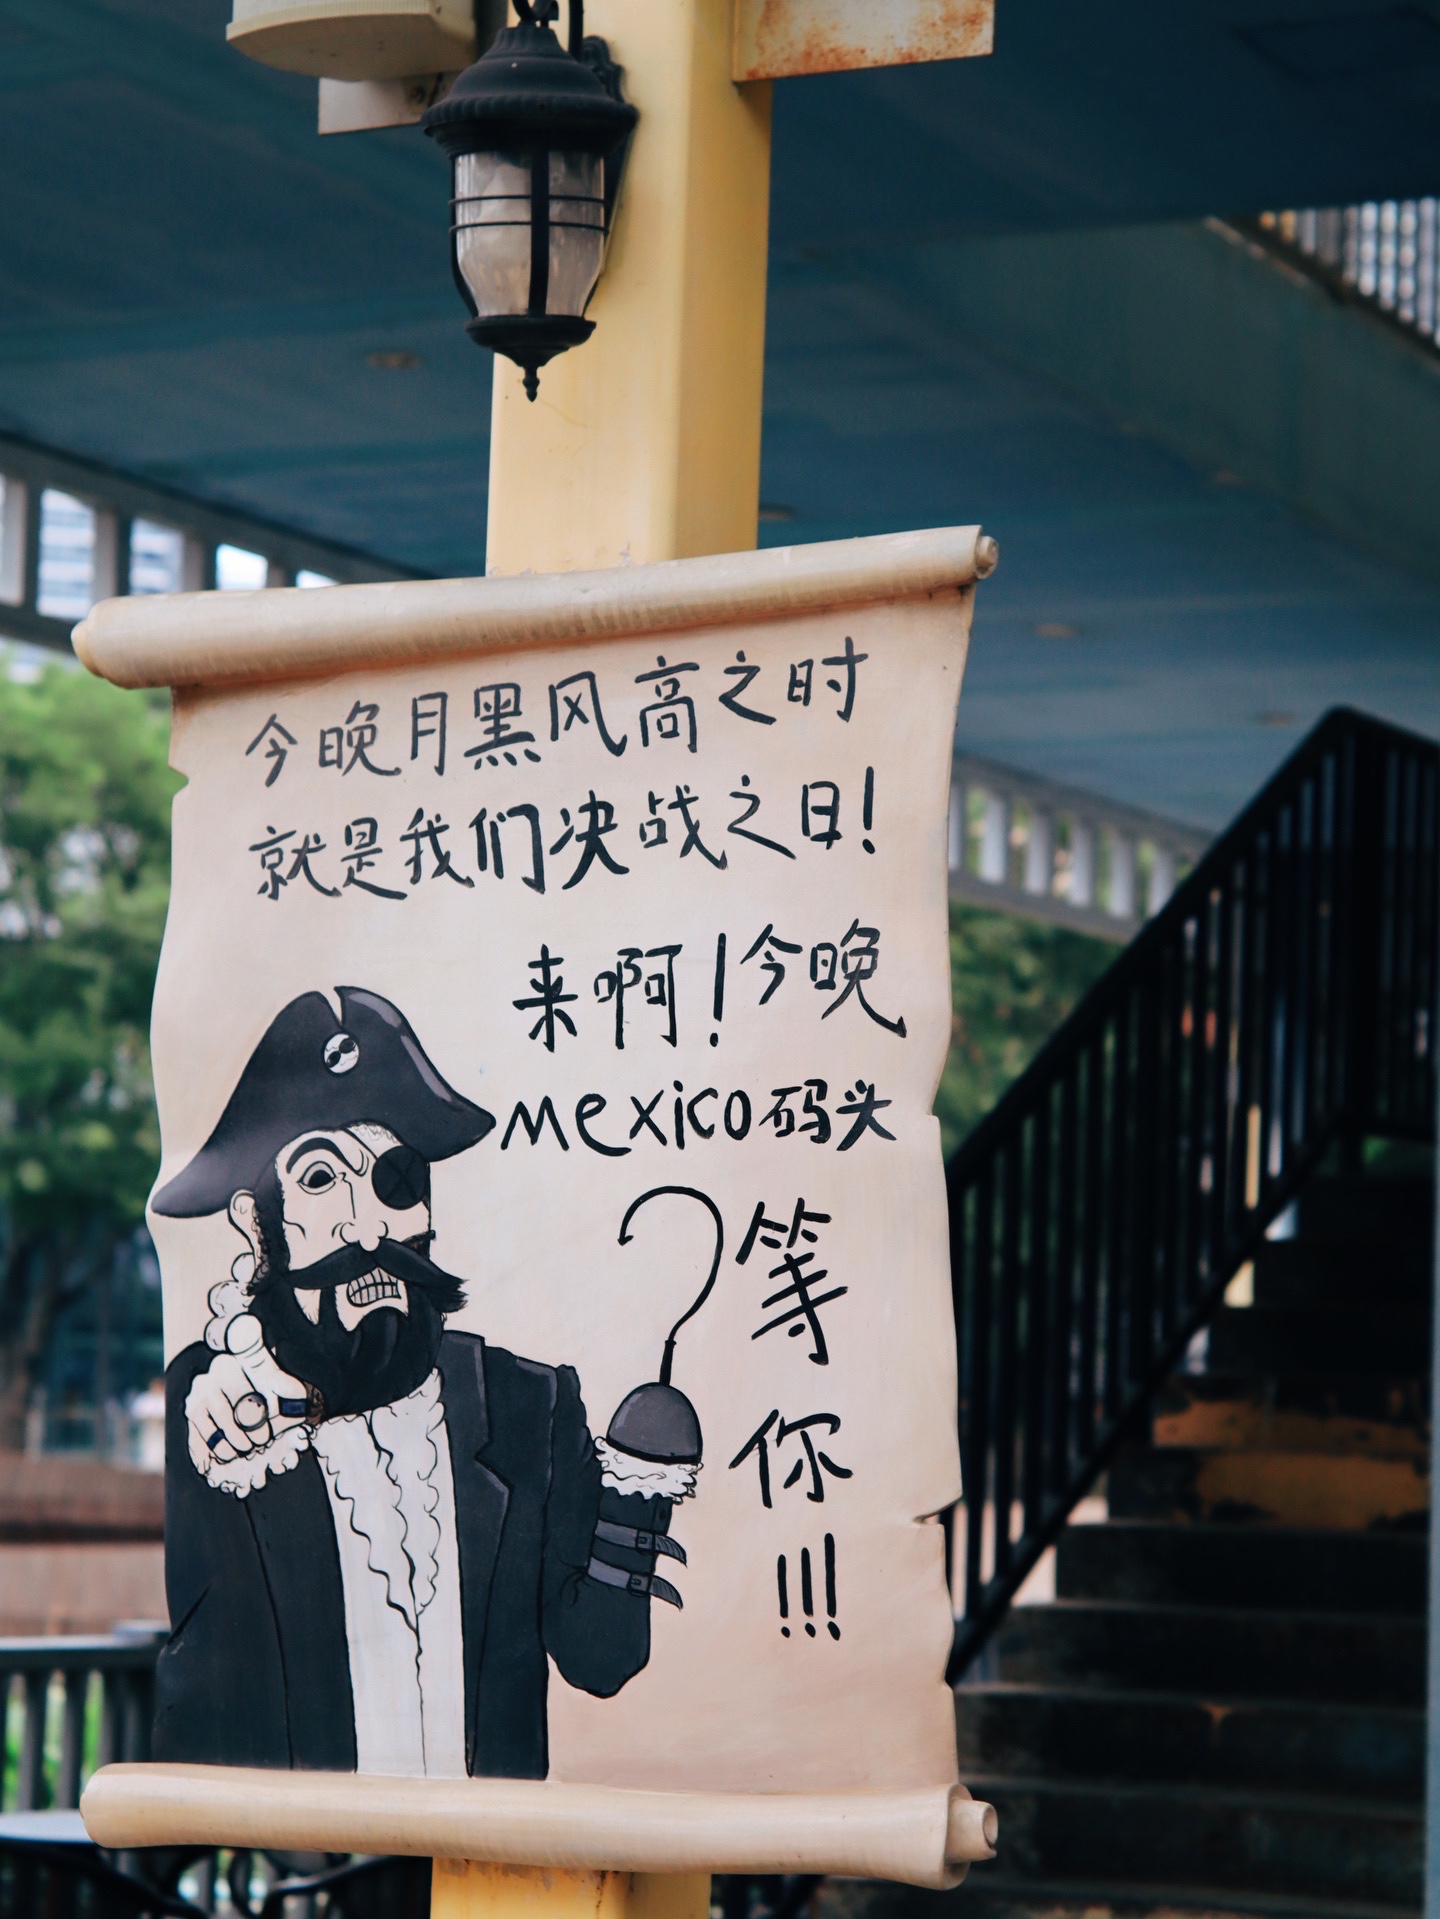 今晚月黑风高之时
就是我们决战之日!
来啊!今晚
mexico码头
等
你
!!!